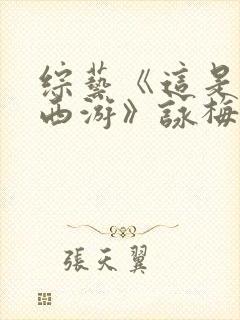 綜藝《這是
西游》詠梅
張天翼